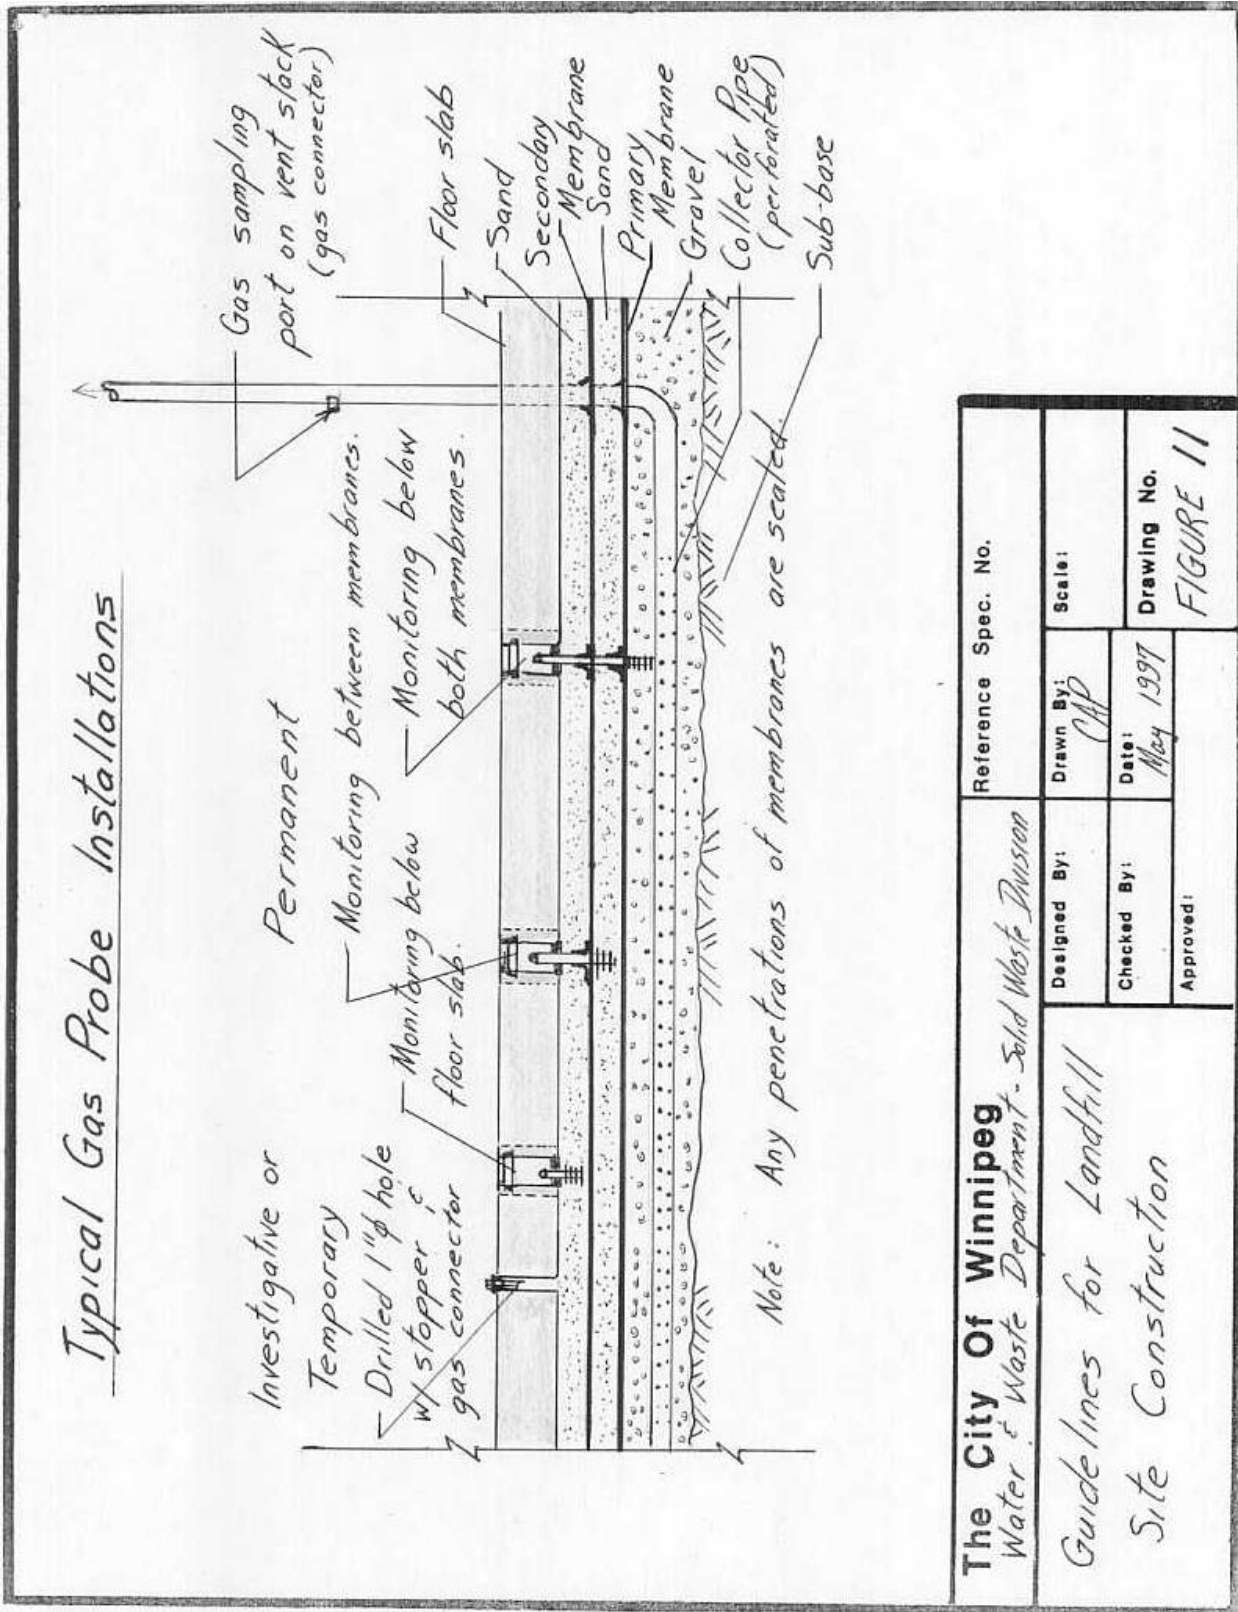 Typical Gas Probe Installations
Investigative or
Temporary
Drilled 1"ϕ hole
w/ stopper &
gas connector
Permanent
Monitoring below
floor slab.
Monitoring between membranes.
Monitoring below
both membranes.
Gas sampling
port on vent stack
(gas connector)
Floor slab
Sand
Secondary
Membrane
Sand
Primary
Membrane
Gravel
Collector Pipe
(perforated)
Sub-base
Note: Any penetrations of membranes are sealed.
The City Of Winnipeg
Water & Waste Department - Solid Waste Division
Reference Spec. No.
Guidelines for Landfill
Site Construction
Designed By:
Drawn By:
CAP
Scale:
Checked By:
Date:
May 1997
Drawing No.
FIGURE 11
Approved: